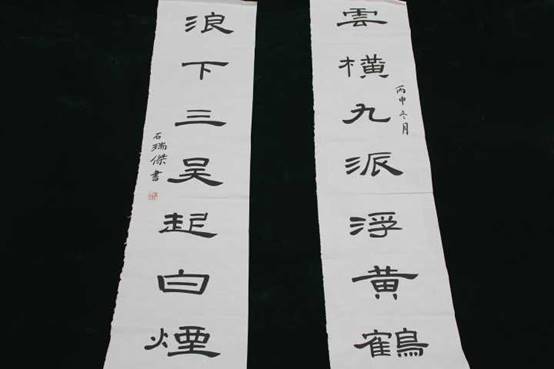 雲橫九派浮黄鶴
丙申冬月
浪下三吴起白煙
石瑞傑書